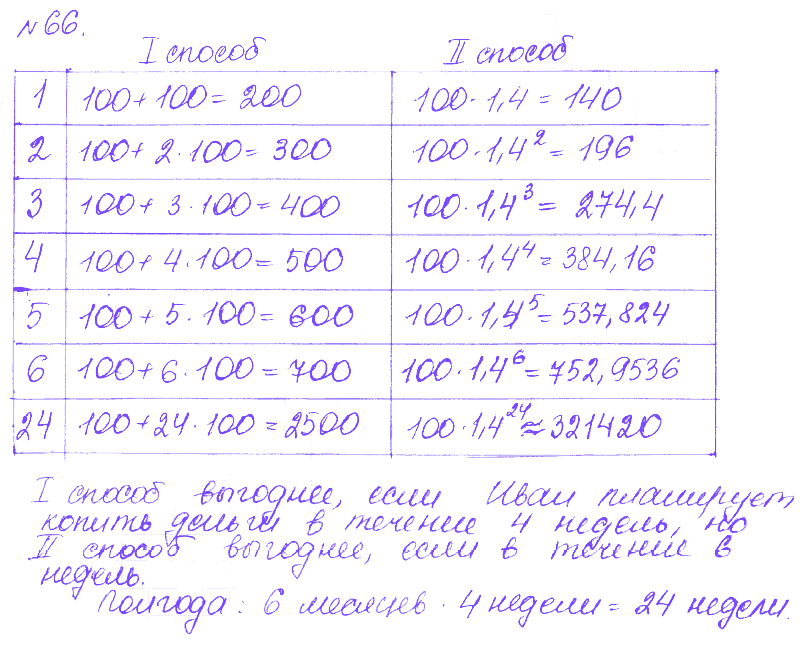 №66.
I способ II способ
1 100+100=200 100·1,4=140
2 100+2·100=300 100·1,4²=196
3 100+3·100=400 100·1,4³=274,4
4 100+4·100=500 100·1,4⁴=384,16
5 100+5·100=600 100·1,4⁵=537,824
6 100+6·100=700 100·1,4⁶=752,9536
24 100+24·100=2500 100·1,4²⁴≈321420
I способ выгоднее, если Иван планирует
копить деньги в течение 4 недель, но
II способ выгоднее, если в течение 6
недель.
Полгода: 6 месяцев · 4 недели = 24 недели.